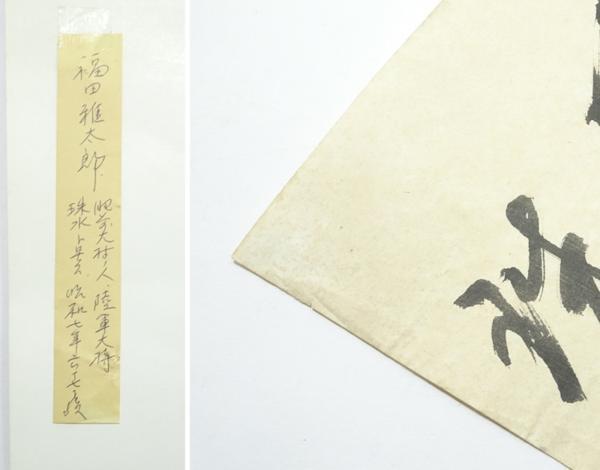 福田雅太郎
肥前大村ノ人、陸軍大将
珠水ト号ス、昭和七年六十七歿